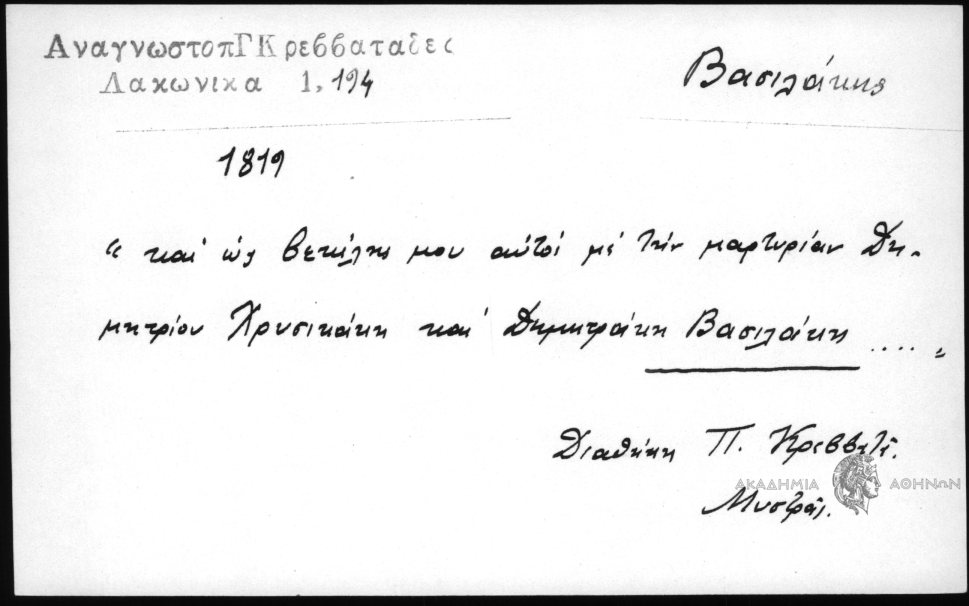 ΑναγνωστοπΓΚρεββαταδες
Λακωνικα 1, 194
Βασιλάκης
1819
“ καί ὡς βεκίλης μου αὐτοί μέ τήν μαρτυρίαν Δη-
μητρίου Χρυσικάκη καί Δημητράκη Βασιλάκη .... „
Διαθήκη Π. Κρεββατᾶ.
ΑΚΑΔΗΜΙΑ ΑΘΗΝΩΝ
Μυστρᾶς.